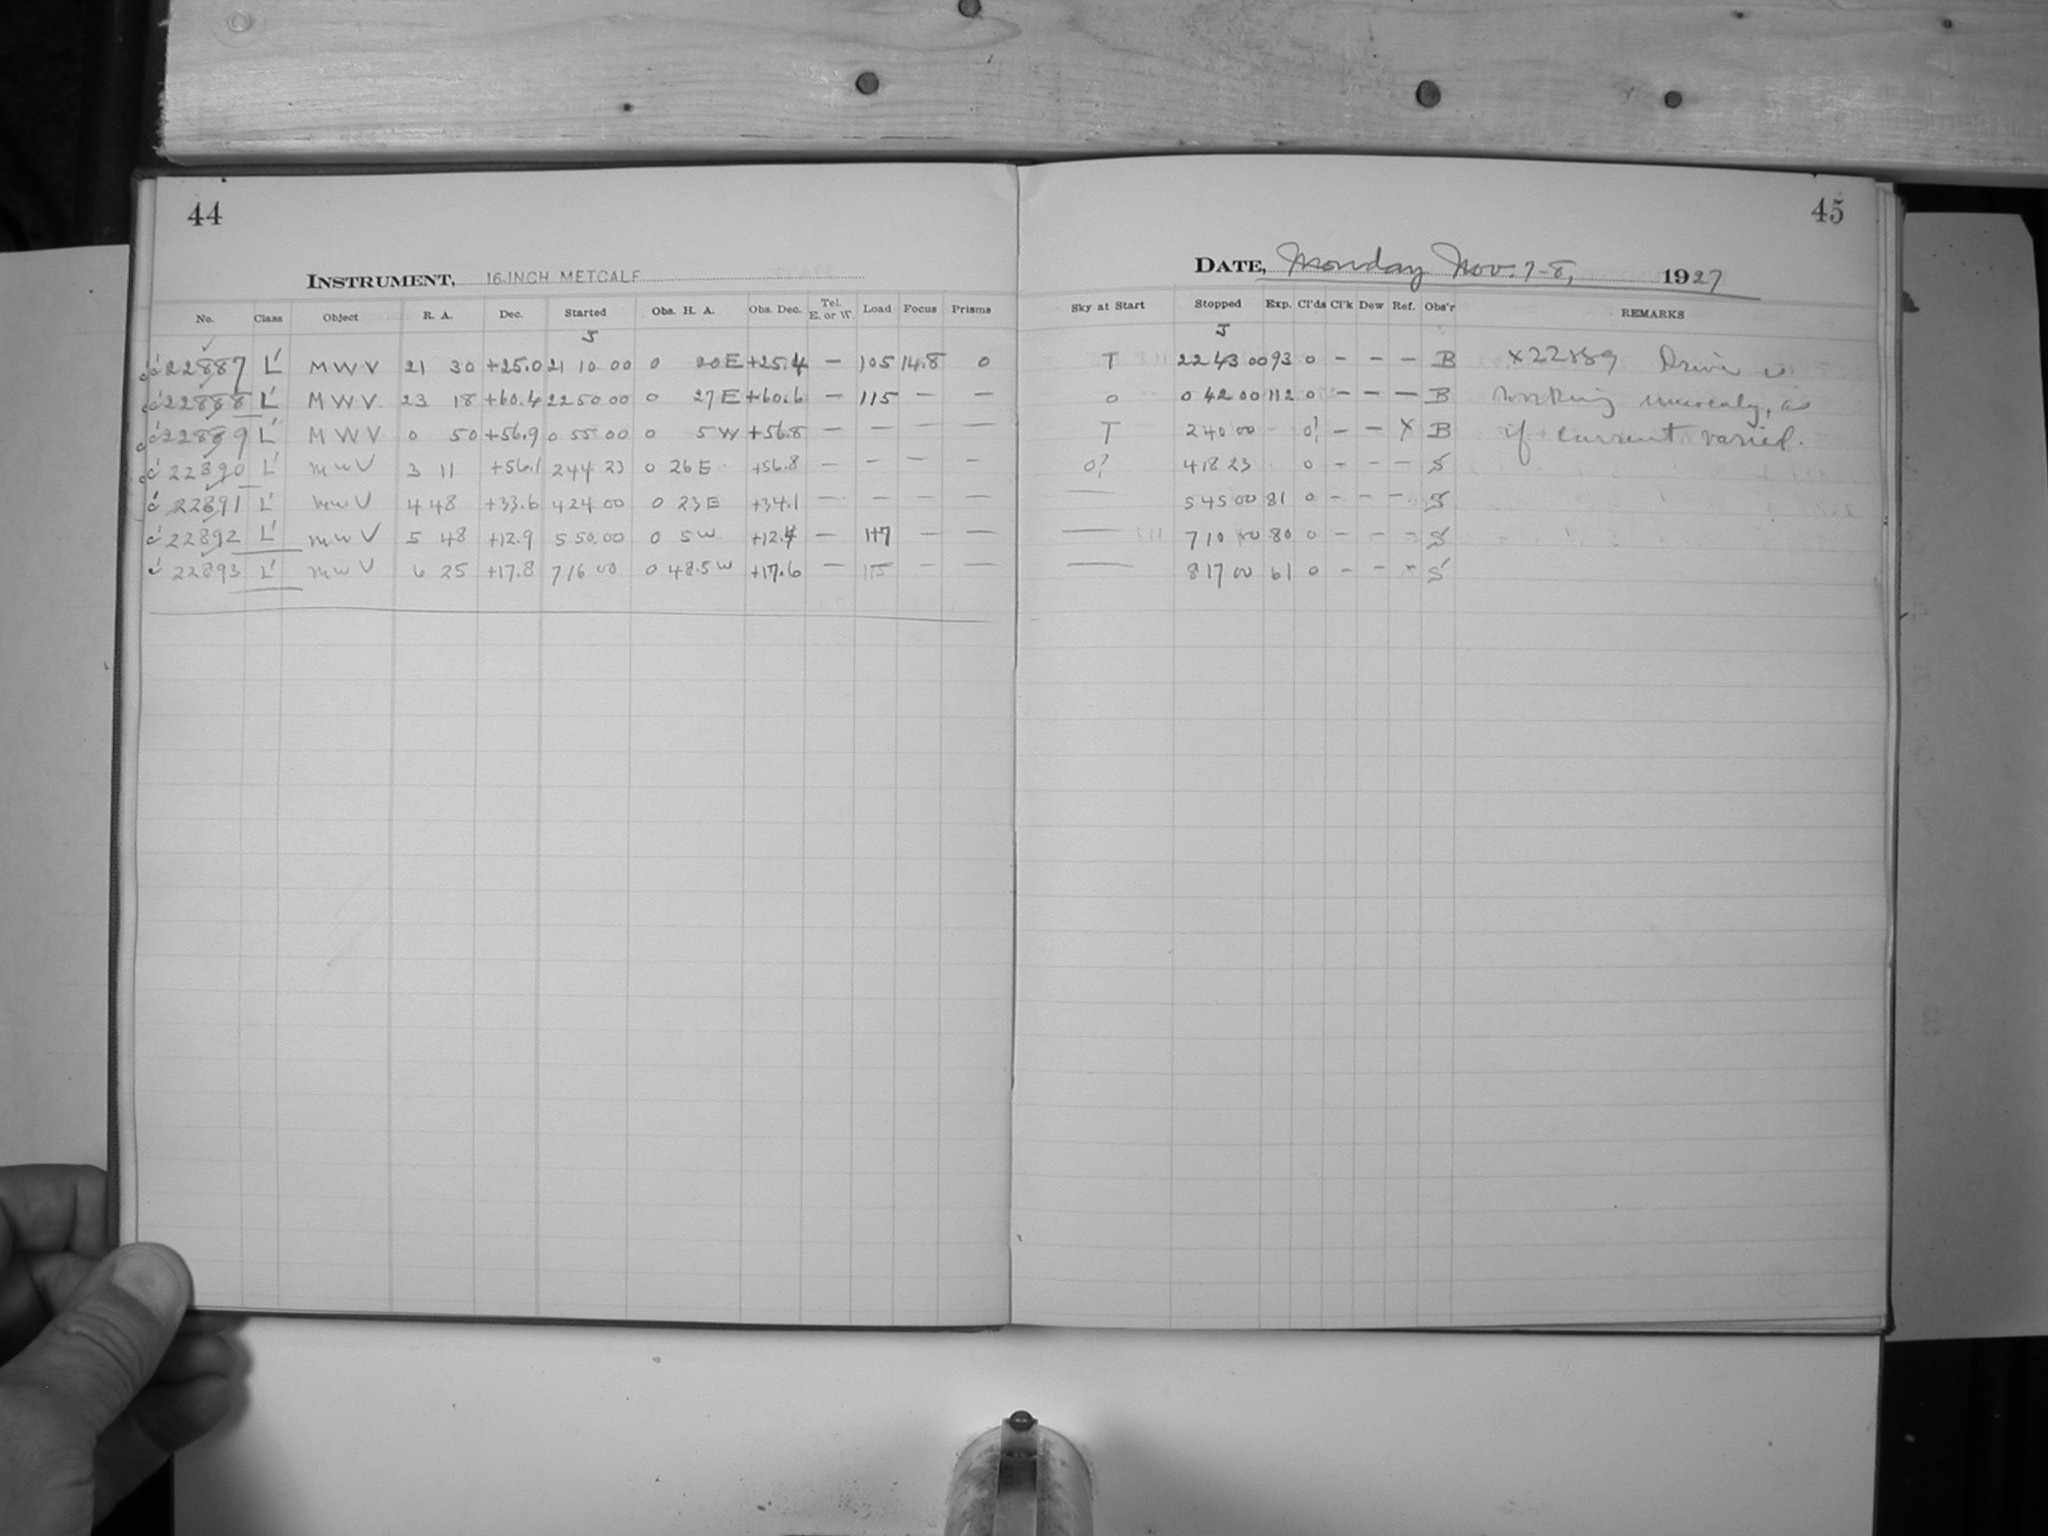 44
INSTRUMENT, 16-INCH METCALF
No. Class Object R. A. Dec. Started Obs. H. A. Obs. Dec. Tel. E. or W. Load Focus Prisms
J
22887 L' M W V 21 30 +25.0 21 10 00 0 20 E +25.4 — 105 14.8 0
22888 L' M W V 23 18 +60.4 22 50 00 0 27 E +60.6 — 115 — —
22889 L' M W V 0 50 +56.9 0 55 00 0 5 W +56.8 — — — —
22890 L' M W V 3 11 +56.1 2 44 23 0 26 E +56.8 — — — —
22891 L' M W V 4 48 +33.6 4 24 00 0 23 E +34.1 — — — —
22892 L' M W V 5 48 +12.9 5 50 00 0 5 W +12.4 — 117 — —
22893 L' M W V 6 25 +17.8 7 16 00 0 48.5 W +17.6 — 115 — —
45
DATE, Monday Nov. 7-8, 1927
Sky at Start Stopped Exp. Cl'ds Cl'k Dew Ref. Obs'r REMARKS
J
T 22 43 00 93 0 — — — B x22889 Drive is
0 0 42 00 112 0 — — — B working unevenly, as
T 2 40 00 0? — — X B if current varied.
0? 4 18 23 0 — — — S
— 5 45 00 81 0 — — — S
— 7 10 00 80 0 — — — S
— 8 17 00 61 0 — — — S